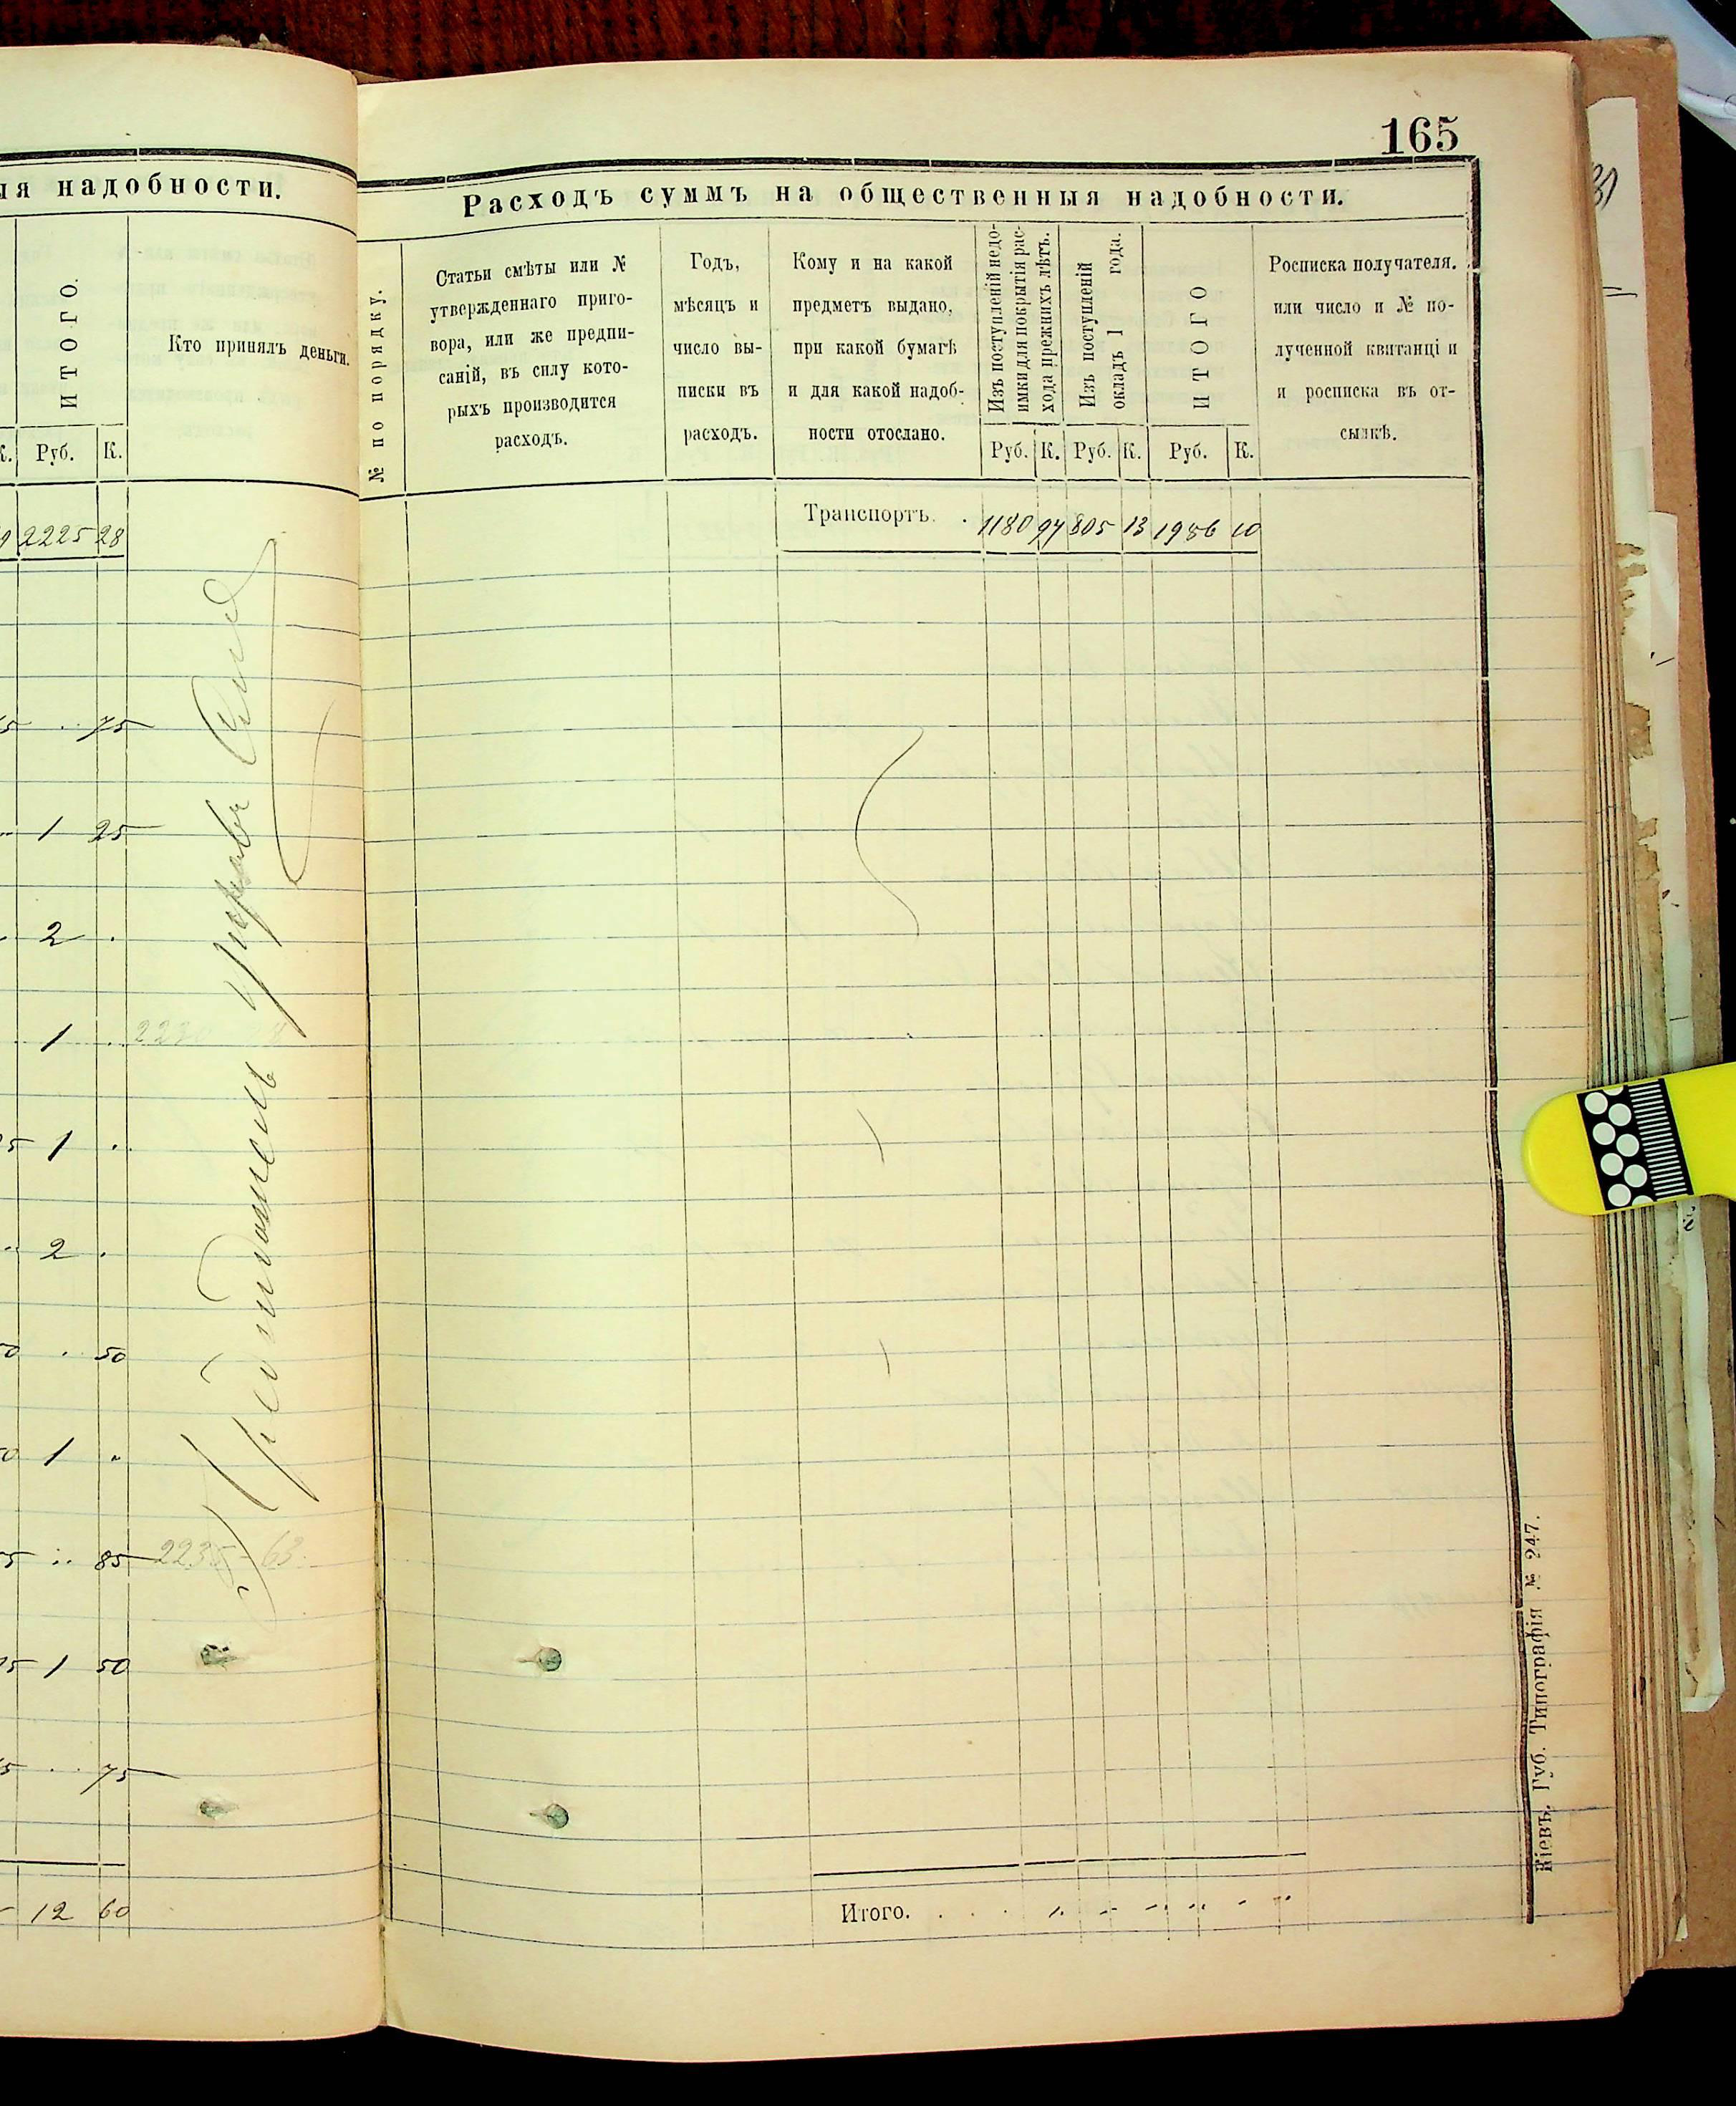 ія надобности.
ИТОГО.
Кто принялъ деньги.
К. Руб. К.
2225 28
75
1 25
2 .
1 ..
5 1 .
2 .
50 . 50
50 1 "
85 2235 63
1 50
75
12 60
165
Расходъ суммъ на общественныя надобности.
№ по порядку.
Статьи смѣты или №
утвержденнаго приго-
вора, или же предпи-
саній, въ силу кото-
рыхъ производится
расходъ.
Годъ,
мѣсяцъ и
число вы-
писки въ
расходъ.
Кому и на какой
предметъ выдано,
при какой бумагѣ
и для какой надоб-
ности отослано.
Изъ поступленій недо-
имки для покрытія рас-
хода прежнихъ лѣтъ.
Изъ поступленій
окладъ 1 года.
ИТОГО
Росписка получателя.
или число и № по-
лученной квитанціи
и росписка въ от-
сылкѣ.
Руб. К. Руб. К. Руб. К.
Транспортъ. . 1180 97 805 13 1986 10
Итого. . . .
Кіевъ. Губ. Типографія № 247.